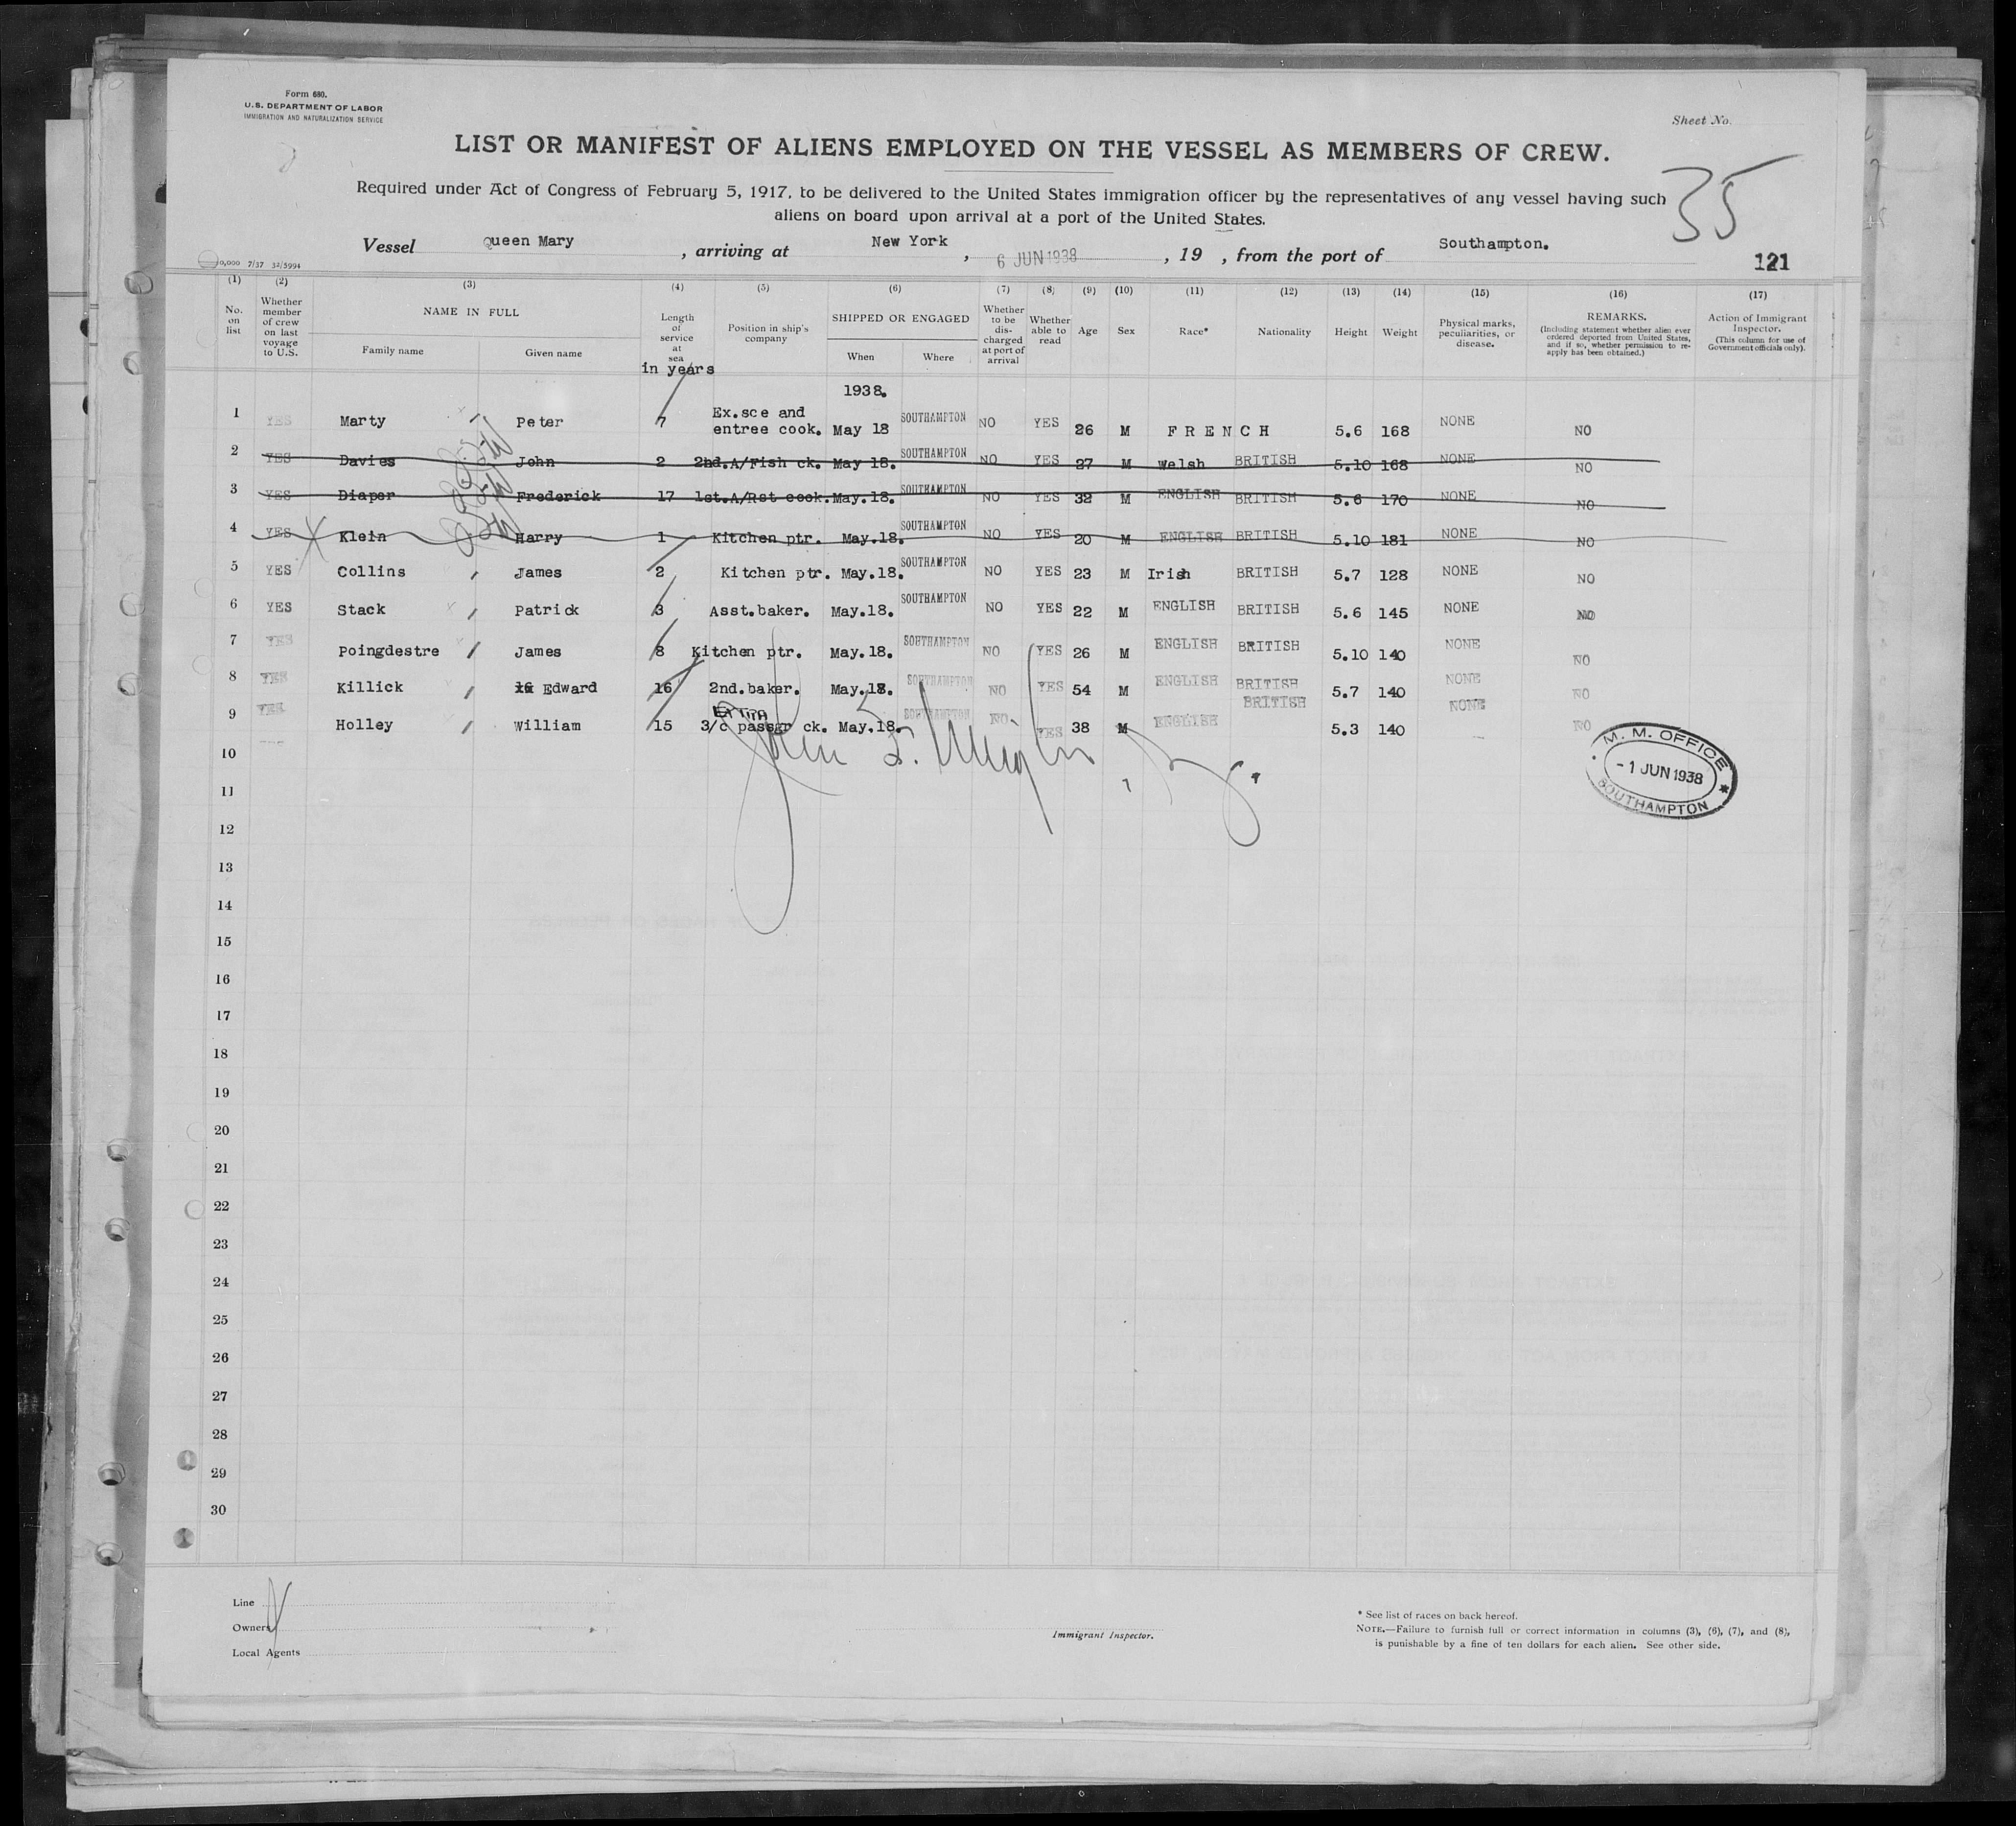 Form 680.
U.S. DEPARTMENT OF LABOR
IMMIGRATION AND NATURALIZATION SERVICE
Sheet No.
LIST OR MANIFEST OF ALIENS EMPLOYED ON THE VESSEL AS MEMBERS OF CREW.
35
Required under Act of Congress of February 5, 1917, to be delivered to the United States immigration officer by the representatives of any vessel having such
aliens on board upon arrival at a port of the United States.
Vessel Queen Mary, arriving at New York, 6 JUN 1938, 19 , from the port of Southampton.
0,000 7/37 32/5994
121
(1) (2) (3) (4) (5) (6) (7) (8) (9) (10) (11) (12) (13) (14) (15) (16) (17)
No. on list
Whether member of crew on last voyage to U.S.
NAME IN FULL
Family name
Given name
Length of service at sea
in years
Position in ship's company
SHIPPED OR ENGAGED
When
Where
Whether to be discharged at port of arrival
Whether able to read
Age
Sex
Race*
Nationality
Height
Weight
Physical marks, peculiarities, or disease.
REMARKS.
(Including statement whether alien ever ordered deported from United States, and if so, whether permission to re-apply has been obtained.)
Action of Immigrant Inspector.
(This column for use of Government officials only).
1938.
1 YES Marty Peter 7 Ex.sce and entree cook. May 18 SOUTHAMPTON NO YES 26 M FRENCH 5.6 168 NONE NO
2 YES Davies John 2 2nd.A/Fish ck. May 18. SOUTHAMPTON NO YES 27 M Welsh BRITISH 5.10 168 NONE NO
3 YES Diaper Frederick 17 1st.A/Rst cook. May.18. SOUTHAMPTON NO YES 32 M ENGLISH BRITISH 5.6 170 NONE NO
4 YES Klein Harry 1 Kitchen ptr. May.18. SOUTHAMPTON NO YES 20 M ENGLISH BRITISH 5.10 181 NONE NO
5 YES Collins James 2 Kitchen ptr. May.18. SOUTHAMPTON NO YES 23 M Irish BRITISH 5.7 128 NONE NO
6 YES Stack Patrick 3 Asst.baker. May.18. SOUTHAMPTON NO YES 22 M ENGLISH BRITISH 5.6 145 NONE NO
7 YES Poingdestre James 8 Kitchen ptr. May.18. SOUTHAMPTON NO YES 26 M ENGLISH BRITISH 5.10 140 NONE NO
8 YES Killick Edward 16 2nd.baker. May.18. SOUTHAMPTON NO YES 54 M ENGLISH BRITISH 5.7 140 NONE NO
9 YES Holley William 15 Extra 3/c passgr ck. May.18. SOUTHAMPTON NO YES 38 M ENGLISH BRITISH 5.3 140 NONE NO
10
M. M. OFFICE
- 1 JUN 1938
SOUTHAMPTON
11
12
13
14
15
16
17
18
19
20
21
22
23
24
25
26
27
28
29
30
Line
Owners
Local Agents
Immigrant Inspector.
* See list of races on back hereof.
NOTE.—Failure to furnish full or correct information in columns (3), (6), (7), and (8),
is punishable by a fine of ten dollars for each alien. See other side.